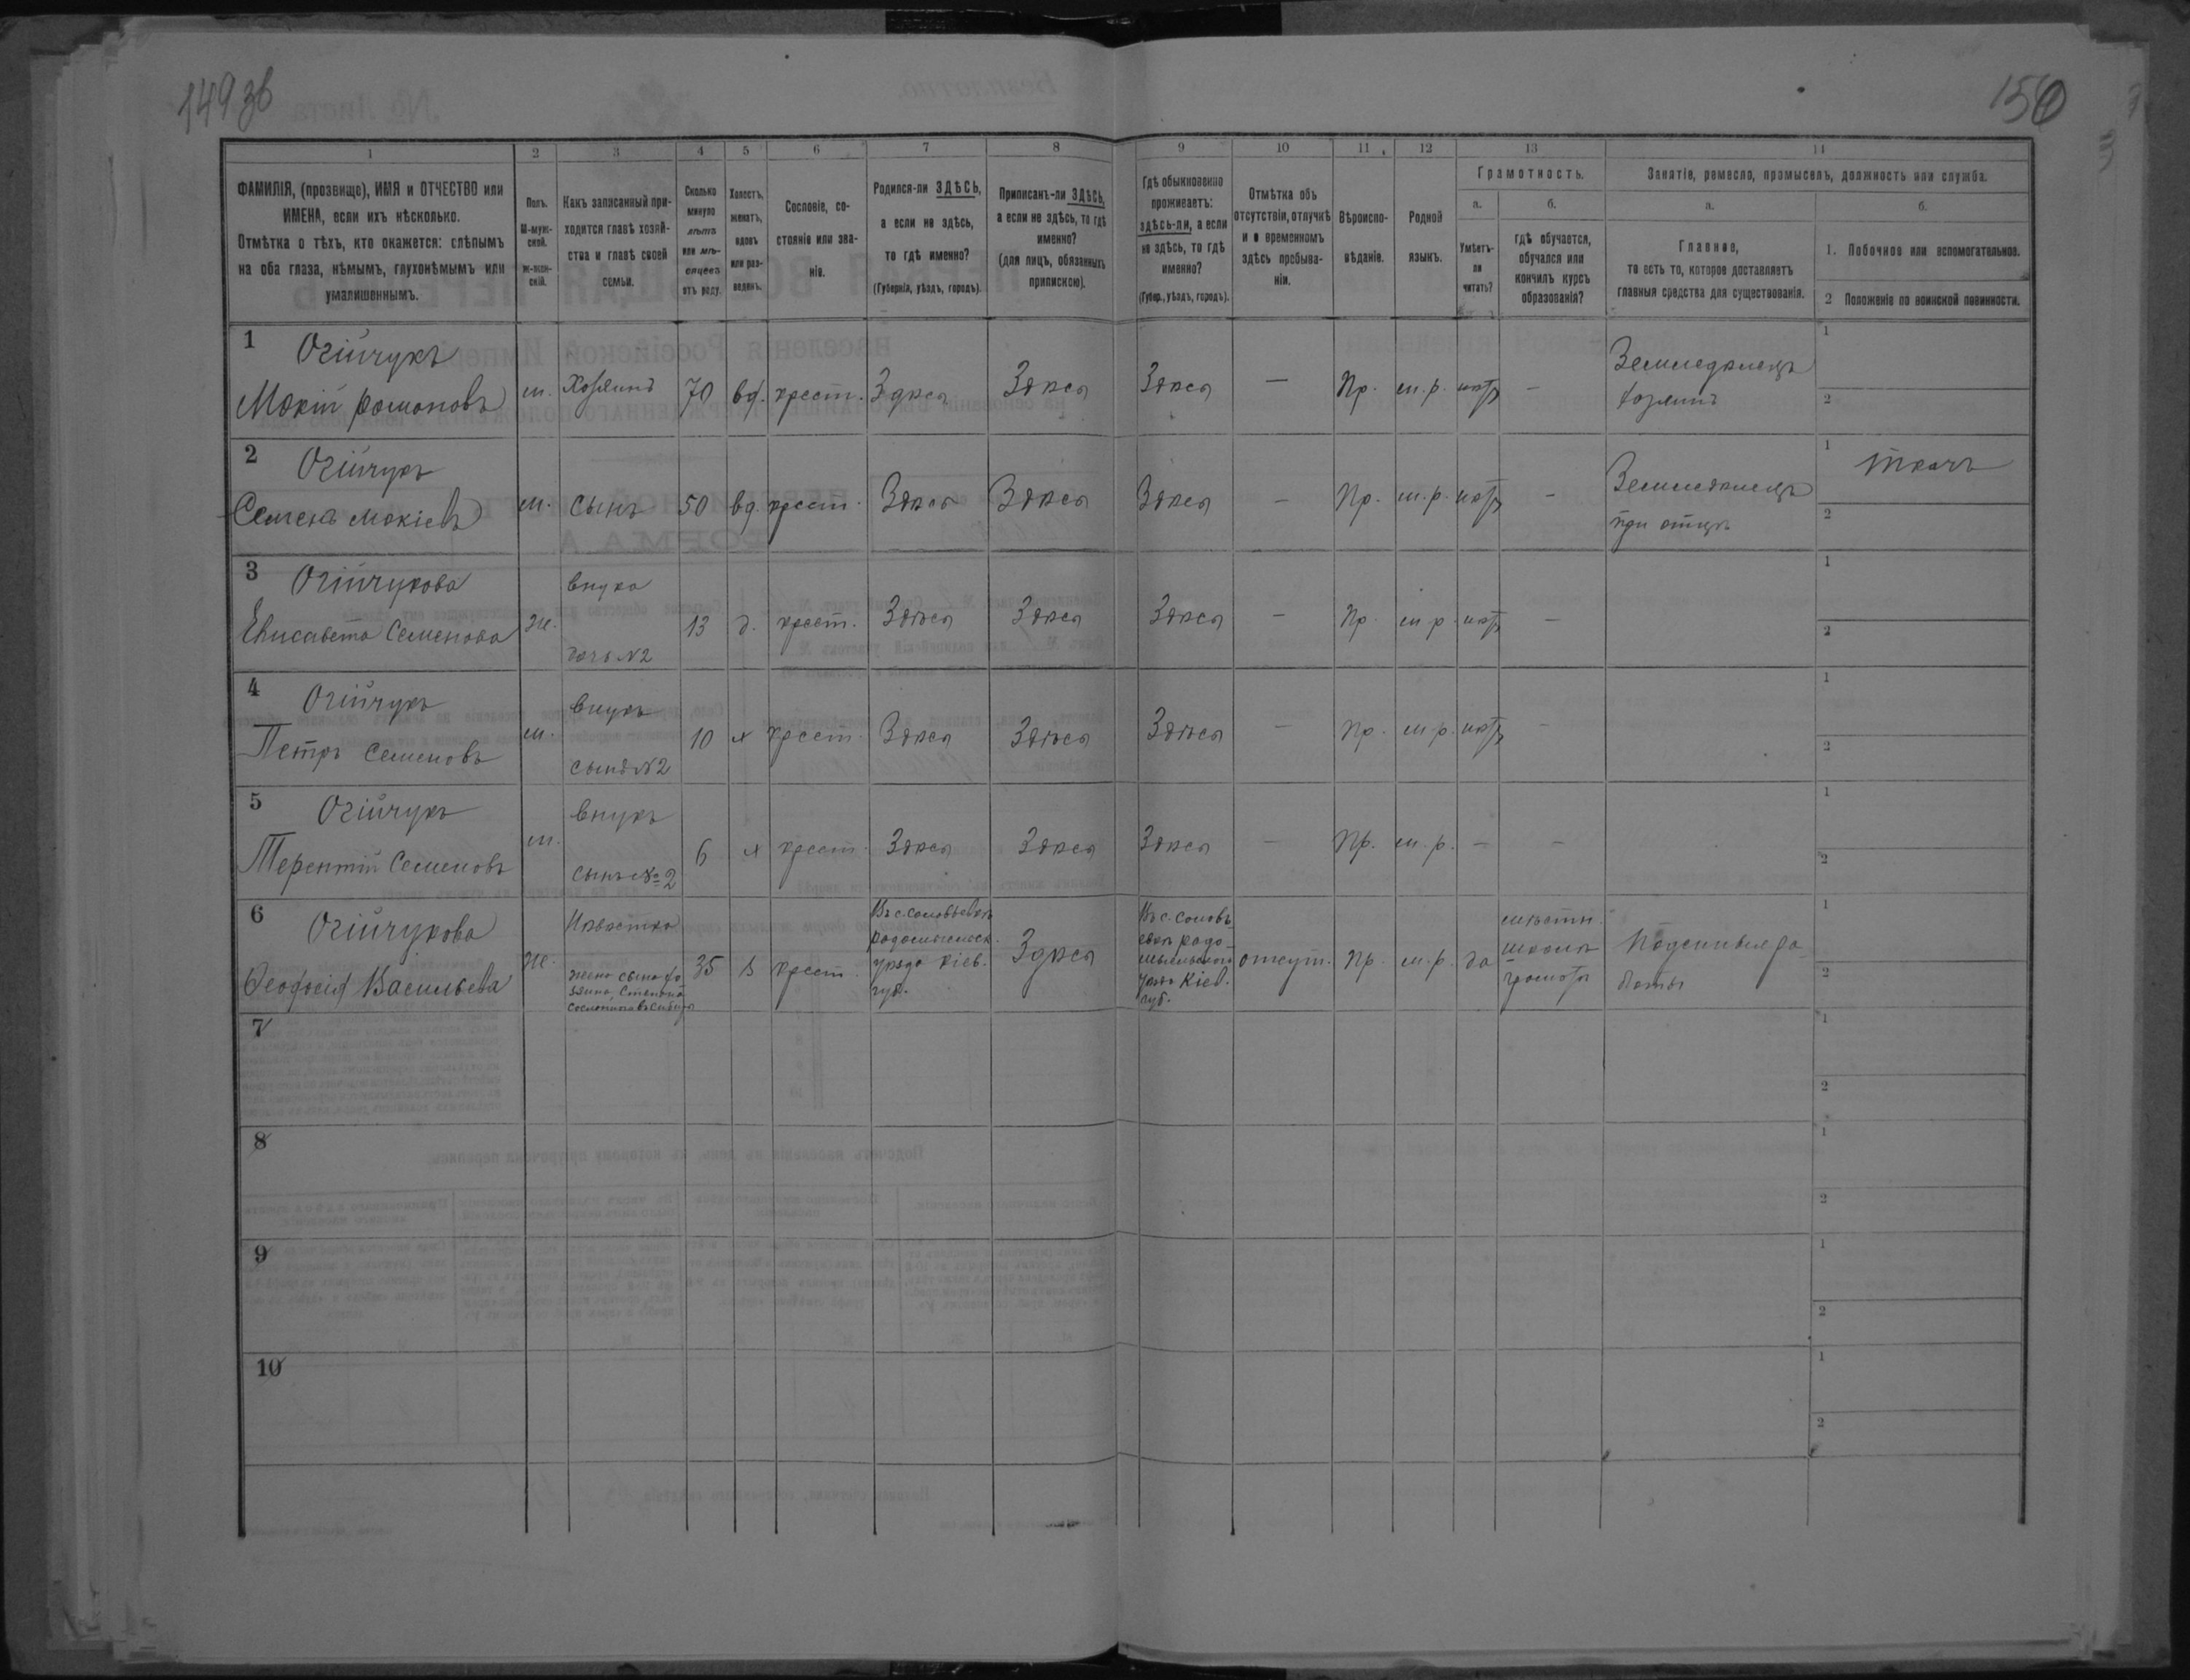 149 зв
150
1
2
3
4
5
6
7
8
9
10
11
12
13
14
ФАМИЛІЯ, (прозвище), ИМЯ и ОТЧЕСТВО или
ИМЕНА, если ихъ нѣсколько.
Отмѣтка о тѣхъ, кто окажется: слѣпымъ
на оба глаза, нѣмымъ, глухонѣмымъ или
умалишеннымъ.
Полъ.
М-муж-
ской.
ж-жен-
скій.
Какъ записанный при-
ходится главѣ хозяй-
ства и главѣ своей
семьи.
Сколько
минуло
лѣтъ
или мѣ-
сяцевъ
отъ роду.
Холостъ,
женатъ,
вдовъ
или раз-
веденъ.
Сословіе, со-
стояніе или зва-
ніе.
Родился-ли ЗДѢСЬ,
а если не здѣсь,
то гдѣ именно?
(Губернія, уѣздъ, городъ).
Приписанъ-ли ЗДѢСЬ,
а если не здѣсь, то гдѣ
именно?
(для лицъ, обязанныхъ
припискою).
Гдѣ обыкновенно
проживаетъ:
здѣсь-ли, а если
не здѣсь, то гдѣ
именно?
(Губер., уѣздъ, городъ).
Отмѣтка объ
отсутствіи, отлучкѣ
и о временномъ
здѣсь пребыва-
ніи.
Вѣроиспо-
вѣданіе.
Родной
языкъ.
Грамотность.
а.
Умѣетъ-
ли
читать?
б.
гдѣ обучается,
обучался или
кончилъ курсъ
образованія?
Занятіе, ремесло, промыселъ, должность или служба.
а.
Главное,
то есть то, которое доставляетъ
главныя средства для существованія.
б.
1. Побочное или вспомогательное.
2 Положеніе по воинской повинности.
1 Огійчукъ
Мокій Романовъ
м.
Хозяинъ
70
вд.
крест.
Здѣсь
Здѣсь
Здѣсь
—
Пр.
м.р.
нѣтъ
—
Земледѣлецъ
хозяинъ
1
2
2 Огійчукъ
Семенъ Мокіевъ
м.
сынъ
50
вд.
крест.
Здѣсь
Здѣсь
Здѣсь
—
Пр.
м.р.
нѣтъ
—
Земледѣлецъ
при отцѣ
1 ткачъ
2
3 Огійчукова
Елисавета Семенова
ж.
внука
дочь №2
13
д.
крест.
Здѣсь
Здѣсь
Здѣсь
—
Пр.
м.р.
нѣтъ
—
1
2
4 Огійчукъ
Петръ Семеновъ
м.
внукъ
сынъ №2
10
х
крест.
Здѣсь
Здѣсь
Здѣсь
—
Пр.
м.р.
нѣтъ
—
1
2
5 Огійчукъ
Терентій Семеновъ
м.
внукъ
сынъ №2
6
х
крест.
Здѣсь
Здѣсь
Здѣсь
—
Пр.
м.р.
—
—
1
2
6 Огійчукова
Ѳеофосія Васильева
ж.
Невѣстка
жена сына хо
зяина Степана
35
з
крест.
Въ с. Соловьевкѣ
радомысльск.
уѣзда Кіев.
губ.
Здѣсь
Въ с. Соловь
евкѣ радо-
мысльскаго
уѣзда Кіев.
губ.
отсут.
Пр.
м.р.
да
школѣ
грамоты
Поденныя ра
боты
1
2
7
1
2
8
1
2
9
1
2
10
1
2